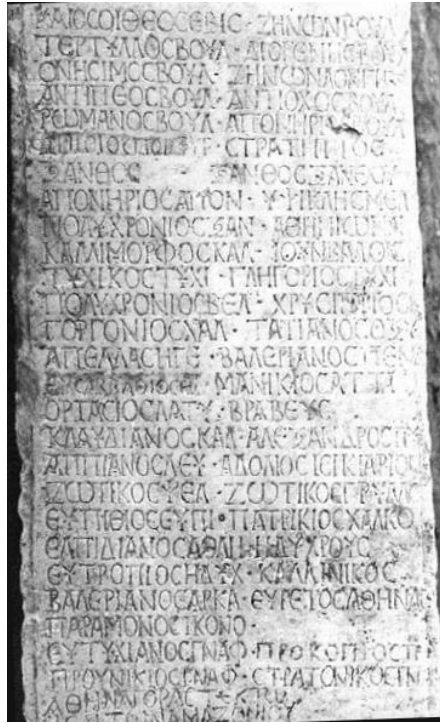 ΚΑΙ ΟϹΟΙ ΘΕΟϹΕΒΙϹ · ΖΗΝΩΝ ΒΟΥΛ
ΤΕΡΤΥΛΛΟϹ ΒΟΥΛ · ΔΙΟΓΕΝΗϹ ΒΟΥΛ
ΟΝΗϹΙΜΟϹ ΒΟΥΛ · ΖΗΝΩΝ ΛΟΝΓΙ
ΑΝΤΙΠΕΟϹ ΒΟΥΛ · ΑΝΤΙΟΧΟϹ ΒΟΥΛ
ΡΩΜΑΝΟϹ ΒΟΥΛ · ΑΠΟΝΗΡΙΟϹ ΒΟΥΛ
ϹΤΡΑΤΗΓΙΟϹ
ΞΑΝΘΟϹ ΞΑΝΘΟϹ ΞΑΝΘΟΥ
ΑΠΟΝΗΡΙΟϹ ΑΠΟΝ · ΥΨΙΚΛΗϹ ΜΕΛ
ΠΟΛΥΧΡΟΝΙΟϹ ΞΑΝ · ΑΘΗΝΙΩΝ
ΚΑΛΛΙΜΟΡΦΟϹ ΚΑΛ · ΙΟΥΝΒΑΛΟϹ
ΤΥΧΙΚΟϹ ΤΥΧΙ · ΓΛΗΓΟΡΙΟϹ ΤΥΧΙ
ΠΟΛΥΧΡΟΝΙΟϹ ΒΕΛ · ΧΡΥϹΙΠΠΟϹ
ΓΟΡΓΟΝΙΟϹ ΧΑΛ · ΤΑΤΙΑΝΟϹ ΟΞΥ
ΑΠΕΛΛΑϹ ΗΓΕ · ΒΑΛΕΡΙΑΝΟϹ ΠΕΝ
ΕΥϹΑΒΒΑΘΙΟϹ ΜΑΝΙΚΙΟϹ ΑΤΤΑ
ΟΡΤΑϹΙΟϹ ΛΑΤΥ · ΒΡΑΒΕΥϹ
ΚΛΑΥΔΙΑΝΟϹ ΚΑΛ · ΑΛΕΞΑΝΔΡΟϹ ΠΥ
ΑΠΠΙΑΝΟϹ ΛΕΥ · ΑΔΟΛΙΟϹ ΙϹΙΚΙΑΡΙΟϹ
ΖΩΤΙΚΟϹ ΨΕΛ · ΖΩΤΙΚΟϹ ΓΡΥΛΛ
ΕΥΠΙΘΙΟϹ ΕΥΠΙ · ΠΑΤΡΙΚΙΟϹ ΧΑΛΚΟ
ΕΛΠΙΔΙΑΝΟϹ ΑΘΛΗ · ΗΔΥΧΡΟΥϹ
ΕΥΤΡΟΠΙΟϹ ΗΔΥΧ · ΚΑΛΛΙΝΙΚΟϹ
ΒΑΛΕΡΙΑΝΟϹ ΑΡΚΑ · ΕΥΡΕΤΟϹ ΑΘΗΝΑΓ
ΠΑΡΑΜΟΝΟϹ ΙΚΟΝΟ ·
ΕΥΤΥΧΙΑΝΟϹ ΓΝΑΦ · ΠΡΟΚΟΠΙΟϹ ΤΡ
ΠΡΟΥΝΙΚΙΟϹ ΓΝΑΦ · ϹΤΡΑΤΟΝΙΚΟϹ ΓΝ
ΑΘΗΝΑΓΟΡΑϹ